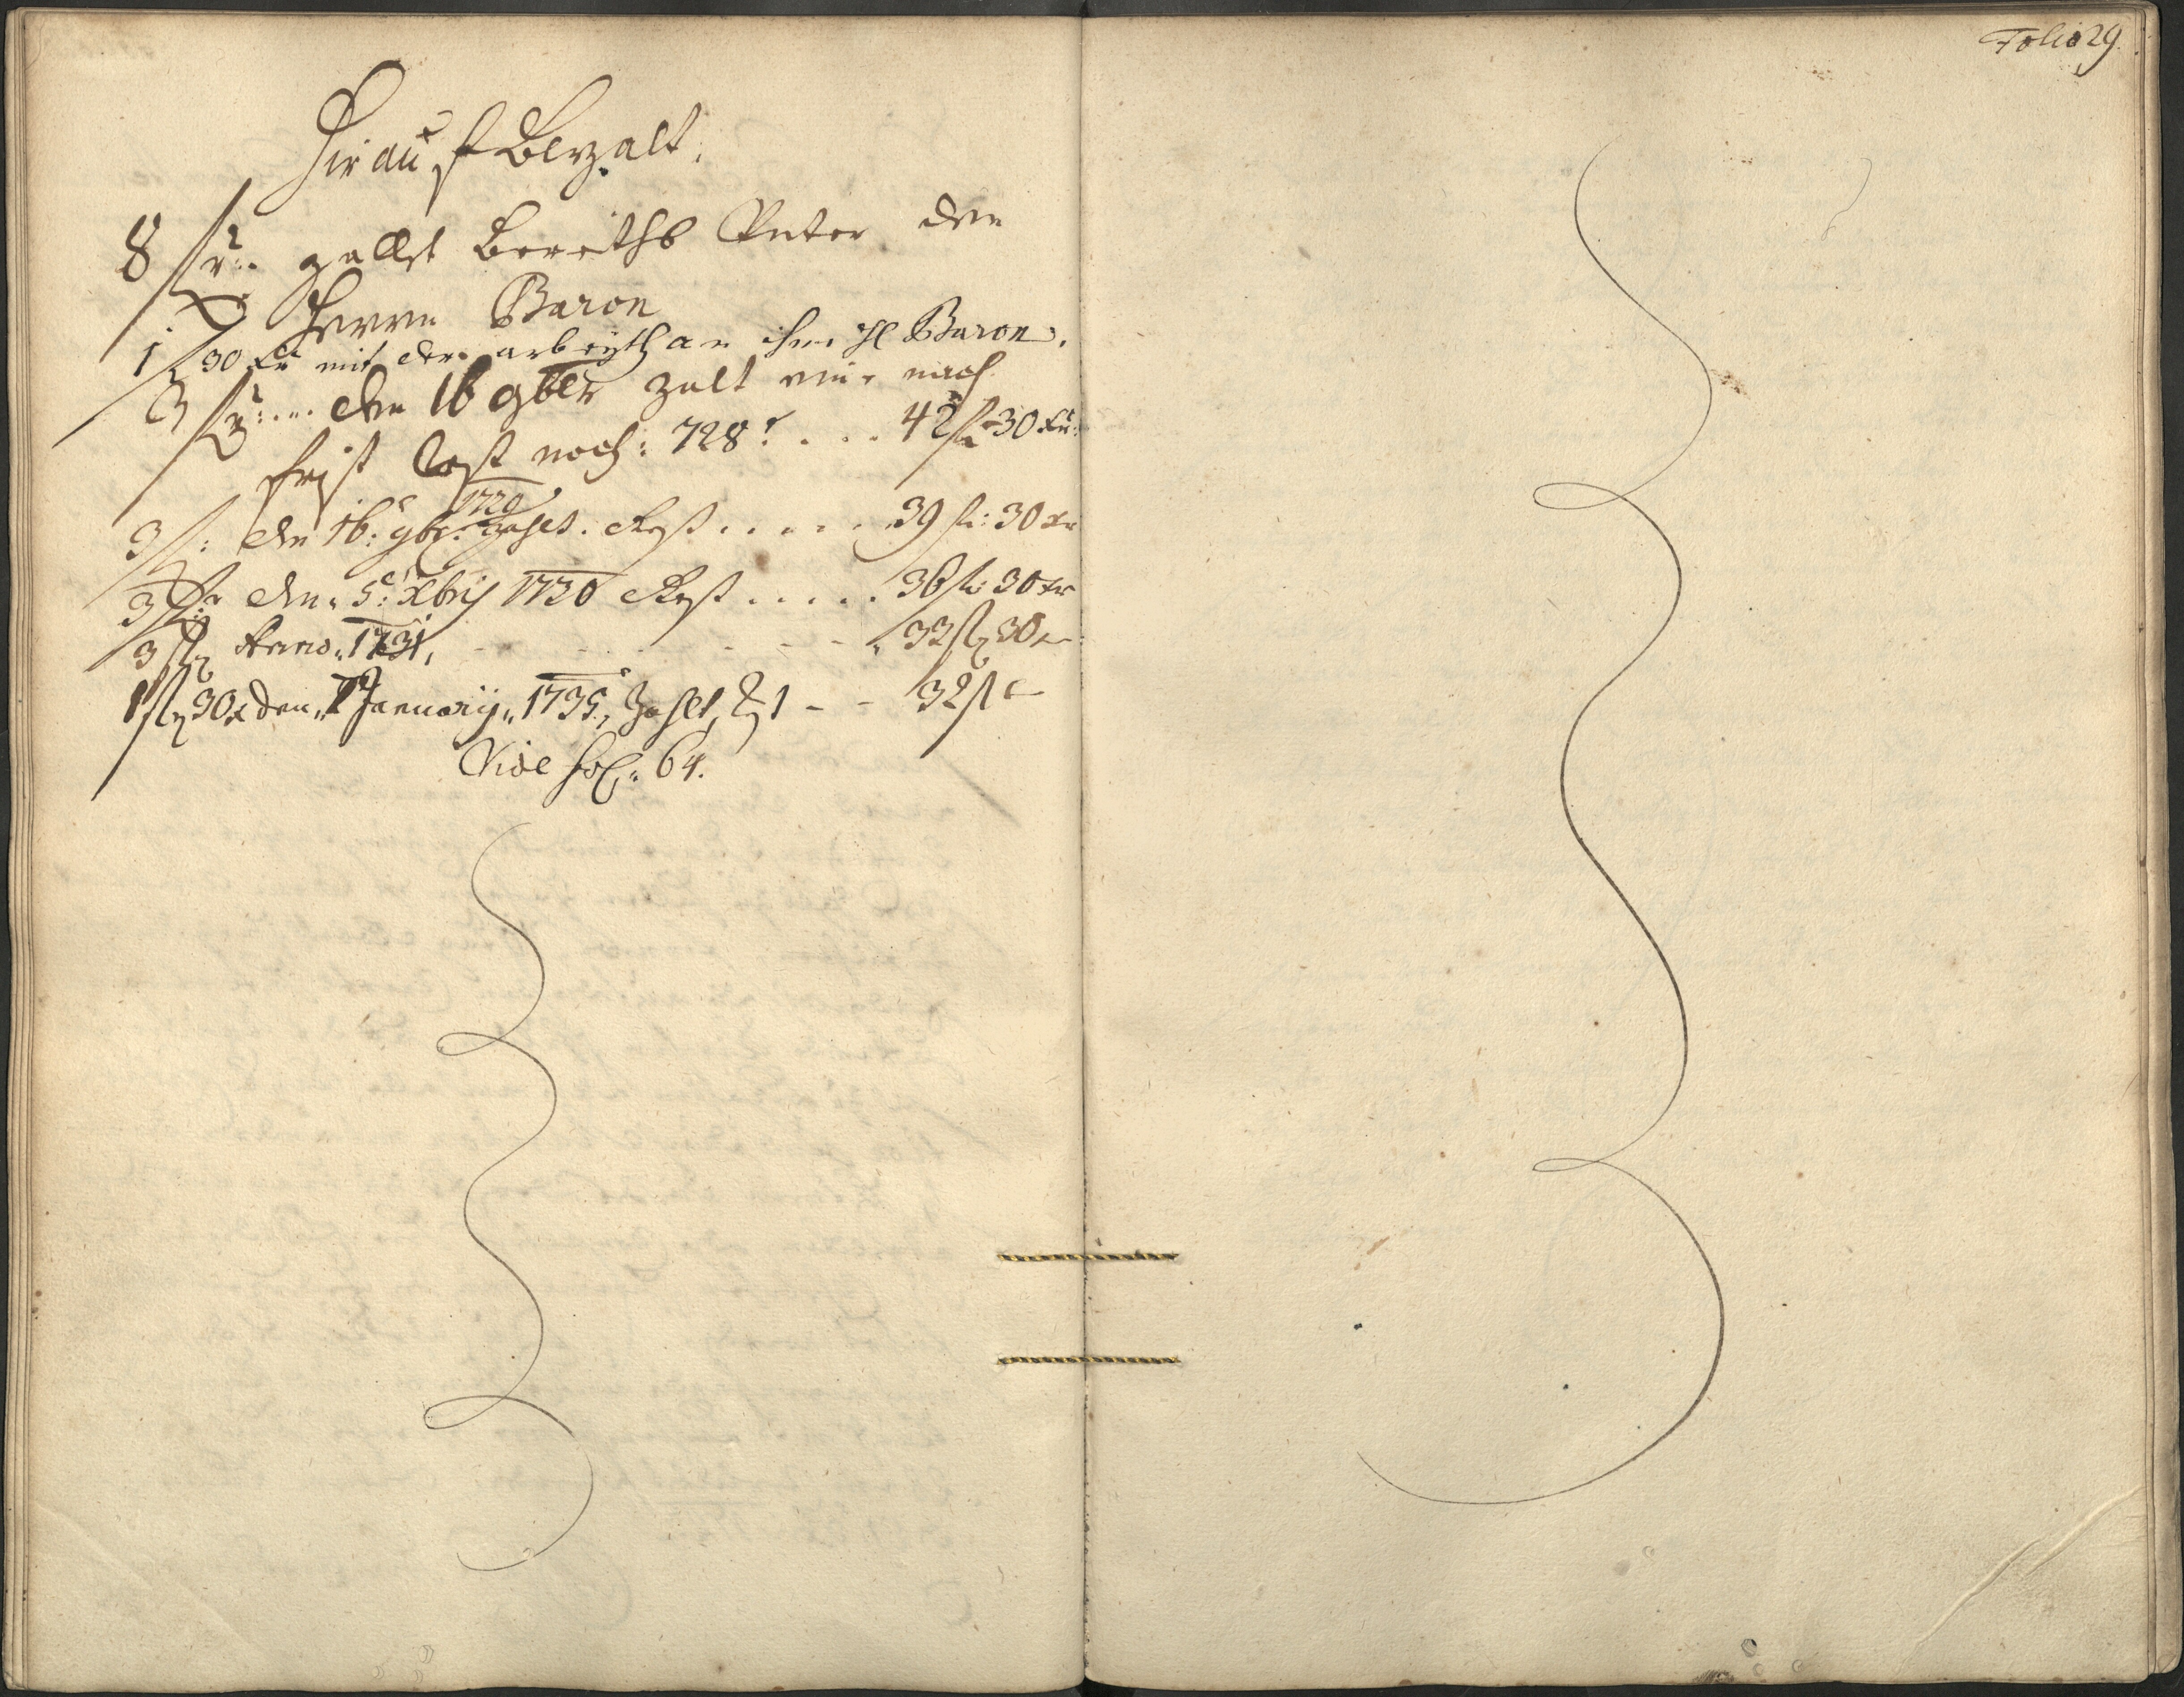 Hierauf Bezalt.
8 fl: zallt bereiths Unter den
Herrn Baron
1 fl 30 xr mit der arbeyth an ihm H Baron.
3 fl: den 16 9ber zalt mir nach
Rest noch: 728: . . . 42 fl 30 xr:
1729
3 fl: den 16: 9br: zahlt. Rest . . . . . 39 fl: 30 xr
3 fl: den 5: Xbris 1730 Rest . . . . . 36 fl: 30 xr
3 fl: Anno 1731, - - - 33 fl 30 xr
1 fl 30 x den Januarij 1735, Zahlt, - - 32 fl
Vide fol: 64.
Folio 29.